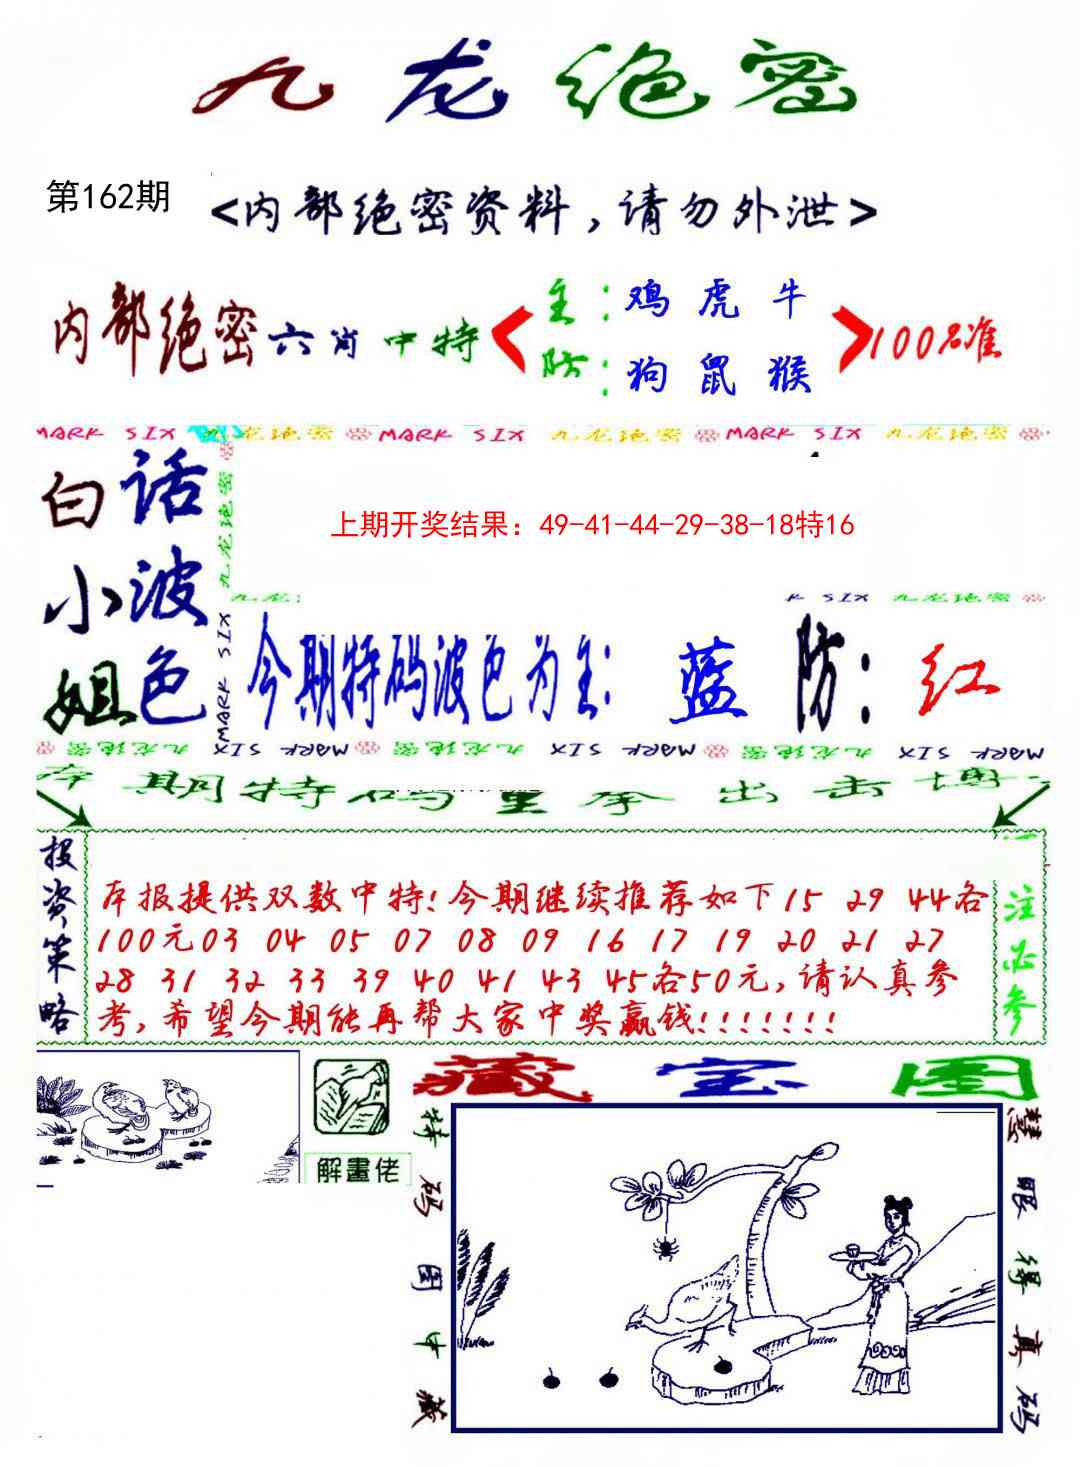 九龙绝密
第162期
<内部绝密资料,请勿外泄>
内部绝密六肖中特
主:鸡 虎 牛
防:狗 鼠 猴
100%准
MARK SIX 九龙绝密 MARK SIX 九龙绝密 MARK SIX 九龙绝密
白小姐
话波色
九龙绝密
MARK SIX
上期开奖结果：49-41-44-29-38-18特16
九龙
K SIX 九龙绝密
今期特码波色为主: 蓝 防: 红
九龙绝密 MARK SIX 九龙绝密 MARK SIX 九龙绝密 MARK SIX
本期特码重拳出击博
投资策略
本报提供双数中特!今期继续推荐如下15 29 44各
100元03 04 05 07 08 09 16 17 19 20 21 27
28 31 32 33 39 40 41 43 45各50元,请认真参
考,希望今期能再帮大家中奖赢钱!!!!!!!
注必参
解畫佬
藏宝图
特码图中藏
慧眼得真码